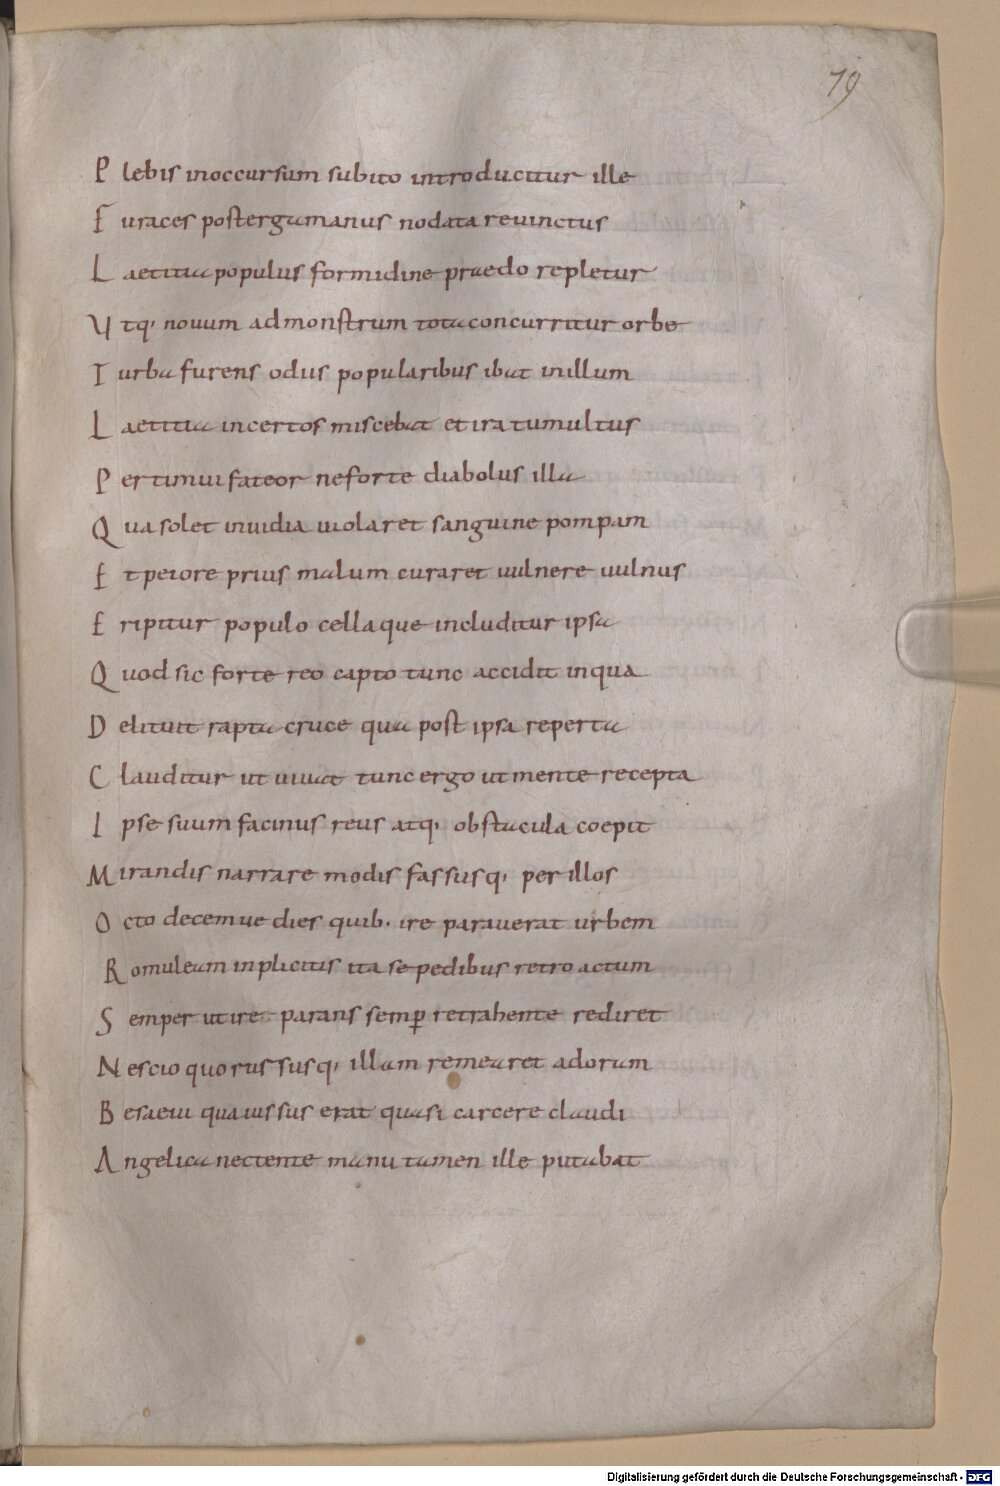 79
Plebis inoccursum subito introducitur ille
Furaces postergumanus nodata reuinctus
Laetitia populus formidine praedo repletur
Vtq; nouum admonstrum tota concurritur orbe
Turba furens odiis popularibus ibat inillum
Laetitia incertos miscebat et ira tumultus
Pertimui fateor neforte diabolus illa
Qua solet inuidia uiolaret sanguine pompam
Et peiore prius malum curaret uulnere uulnus
Eripitur populo cellaque includitur ipsa
Quod sic forte reo capto tunc accidit inqua
Delituit rapta cruce qua post ipsa reperta
Clauditur ut uiuat tunc ergo ut mente recepta
Ipse suum facinus reus atq; obstacula coepit
Mirandis narrare modis fassusq; per illos
Octo decemue dies quib. ire parauerat urbem
Romuleam inplicitis ita se pedibus retro actum
Semper ut iret parans semp retrahente rediret
Nescio quo russusq; illam remearet adoram
Besaeui qua iussus erat quasi carcere claudi
Angelica nectente manu tamen ille putabat
Digitalisierung gefördert durch die Deutsche Forschungsgemeinschaft - DFG